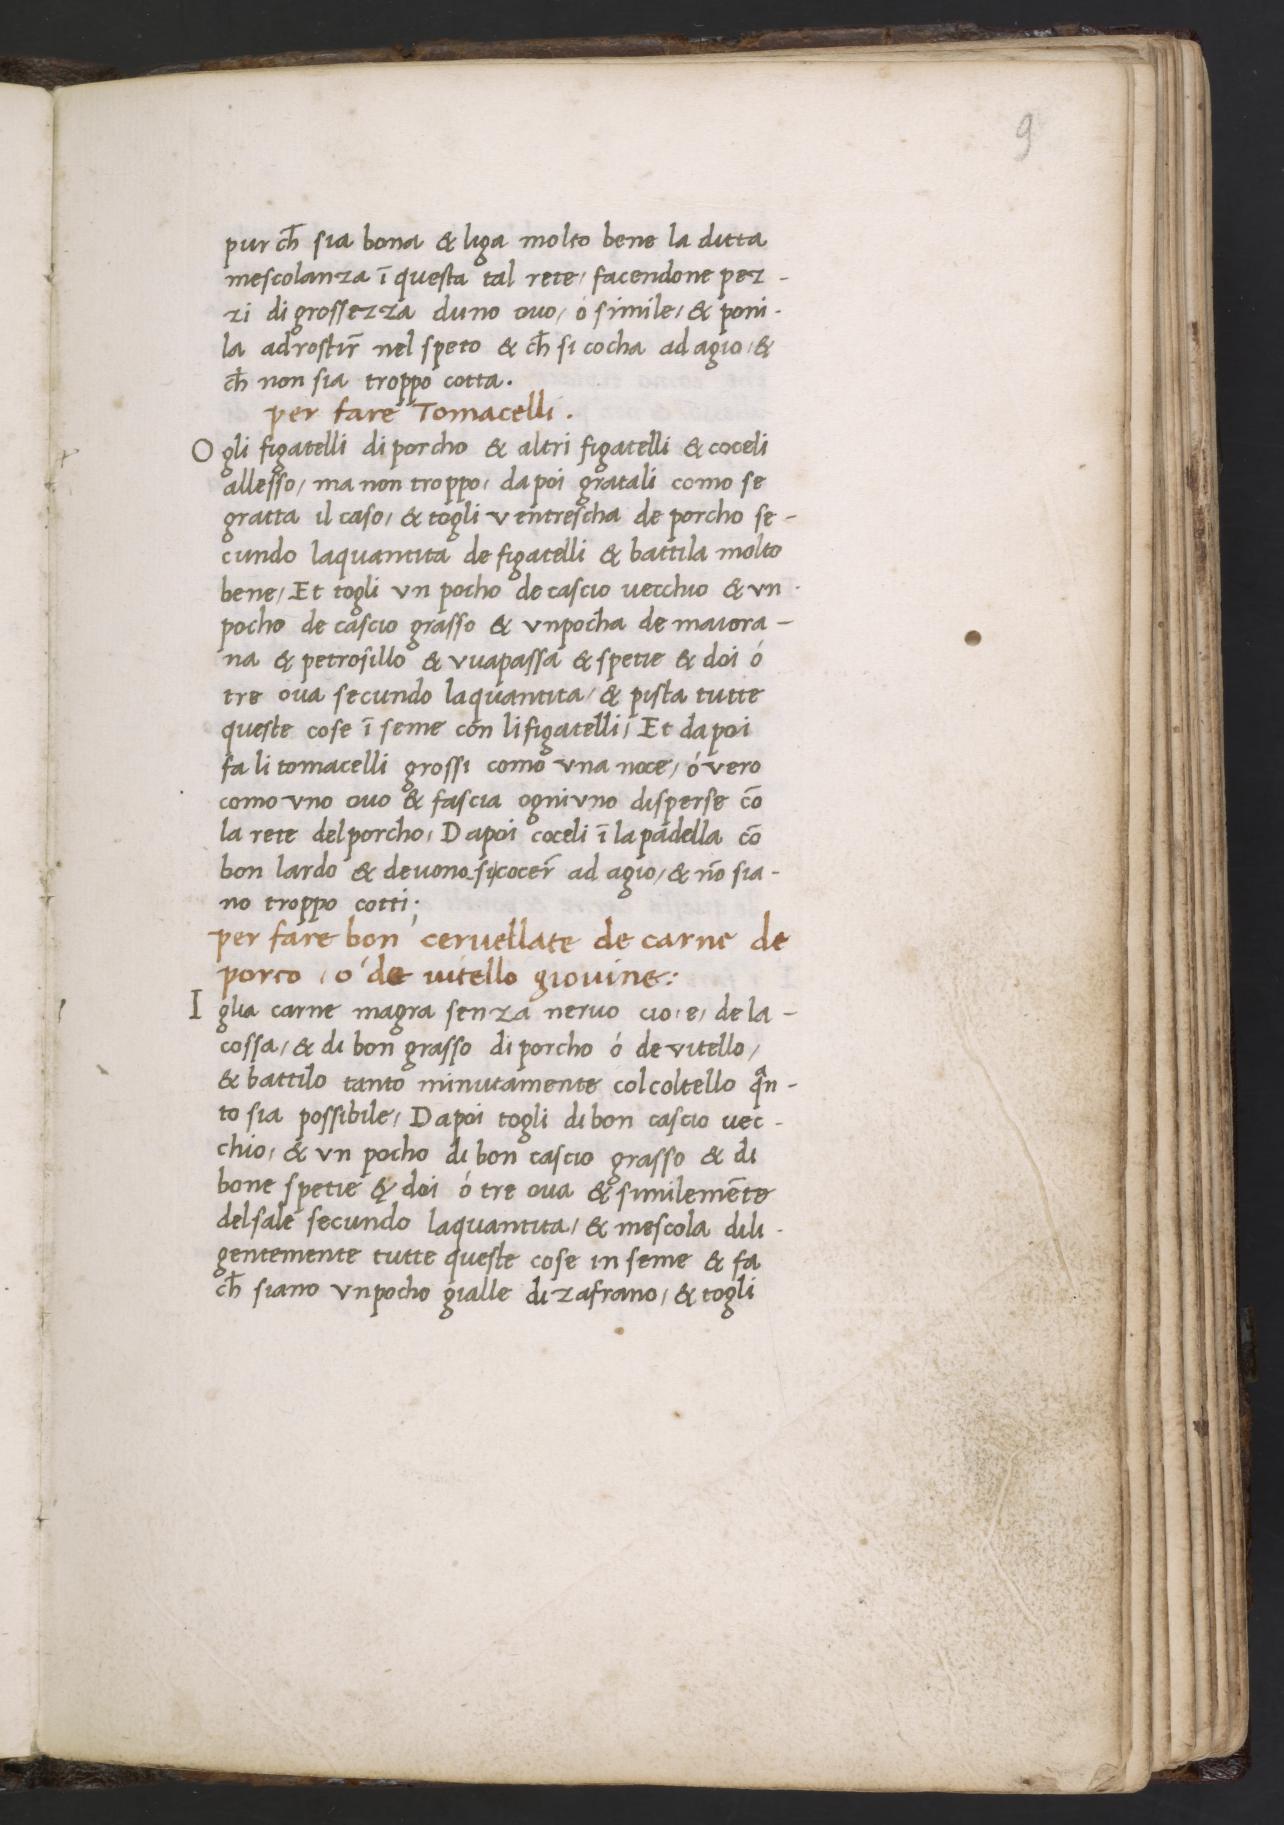 9
pur ch̄ sia bona & liga molto bene la ditta
mescolanza ī questa tal rete / facendone pez -
zi di grossezza duno ouo / ó simile / & poni -
la adrostir̄ nel speto & ch̄ si cocha ad agio / &
ch̄ non sia troppo cotta .
per fare Tomacelli .
O gli figatelli di porcho & altri figatelli & coceli
allesso / ma non troppo / da poi gratali como se
gratta il caso / & togli ventrescha de porcho se -
cundo laquantita de figatelli & battila molto
bene / Et togli vn pocho de cascio uecchio & vn -
pocho de cascio grasso & vnpocha de maiora -
na & petrosillo & vuapassa & spetie & doi ó
tre oua secundo laquantita / & pista tutte
queste cose ī seme con li figatelli / Et dapoi
fa li tomacelli grossi como vna noce / ó vero
como vno ouo & fascia ogniuno disperse cō
la rete del porcho / Dapoi coceli ī la padella cō
bon lardo & deuono si cocer̄ ad agio / & nō sia -
no troppo cotti ;
per fare bon ceruellate de carne de
porco / o de uitello giouine :
I glia carne magra senza neruo cio / e / de la -
cossa / & di bon grasso di porcho ó de vitello /
& battilo tanto minutamente col coltello q̄n -
to sia possibile / Dapoi togli di bon cascio uec -
chio / & vn pocho di bon cascio grasso & di
bone spetie & doi ó tre oua & similemēte
del sale secundo laquantita / & mescola dili -
gentemente tutte queste cose in seme & fa
ch̄ siano vnpocho gialle di zafrano / & togli